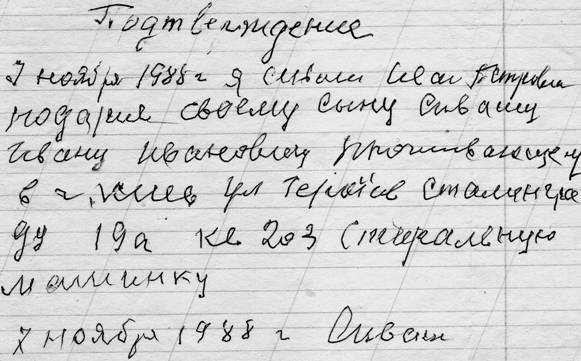 Подтверждение
7 ноября 1988 г я Сиваш Иван Петрович
подарил своему сыну Сивашу
Ивану Ивановичу проживающему
в г. Киев ул Героїв Сталингра
ду 19а кв 203 стиральную
машинку
7 ноября 1988 г Сиваш